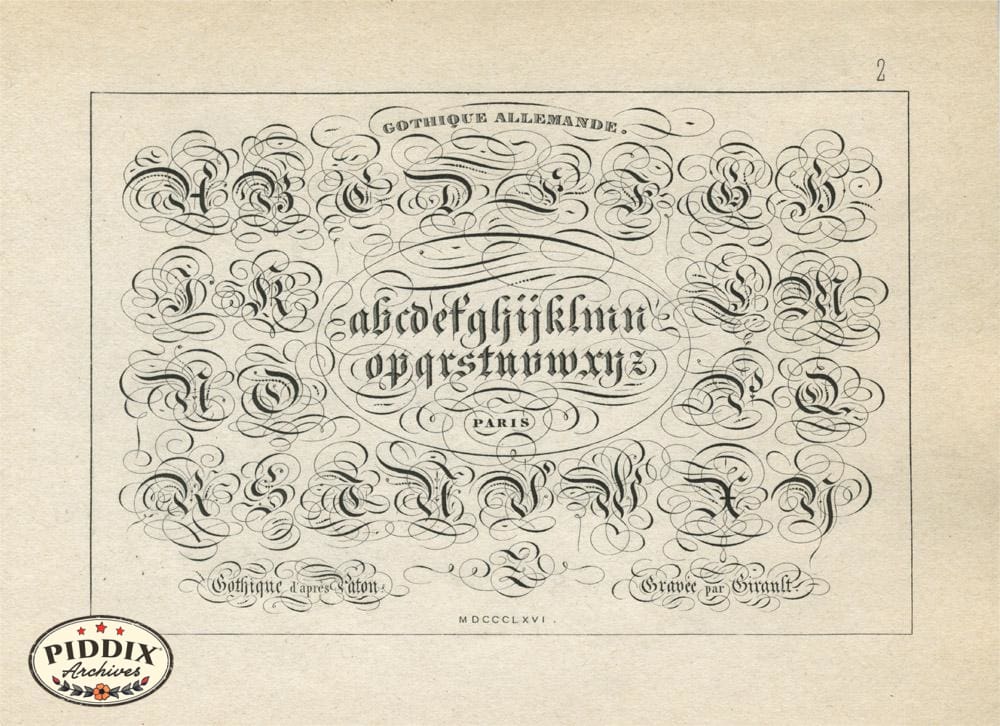 2
GOTHIQUE ALLEMANDE.
A B C D E F G H
I K L M
abcdefghijklmn
opqrstuvwxyz
N O P Q
PARIS
R S T U V W X Y
Z
Gothique d'après Paton.
Gravée par Girault.
MDCCCLXVI.
PIDDIX
Archives